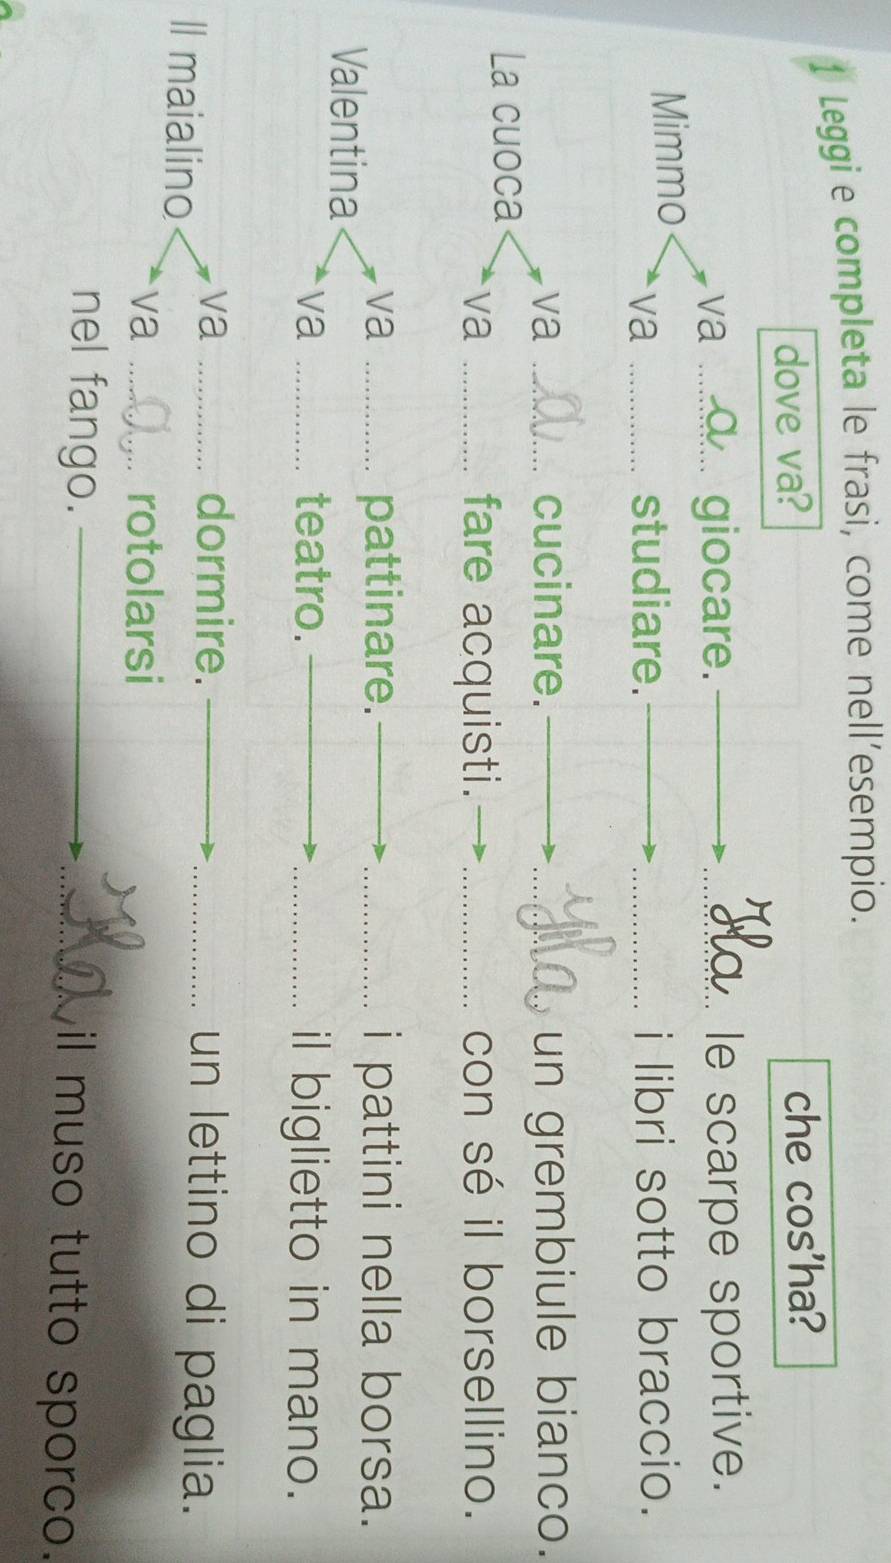 1 Leggi e completa le frasi, come nell'esempio.
dove va? che cos'ha?
Mimmo
va ...a... giocare. Ha le scarpe sportive.
va ............ studiare. ............... i libri sotto braccio.
La cuoca
va ...a... cucinare. Ha un grembiule bianco.
va ............ fare acquisti. ............... con sé il borsellino.
Valentina
va ............ pattinare. ............... i pattini nella borsa.
va ............ teatro. ............... il biglietto in mano.
Il maialino
va ............ dormire. ............... un lettino di paglia.
va ...a... rotolarsi
nel fango. Ha il muso tutto sporco.